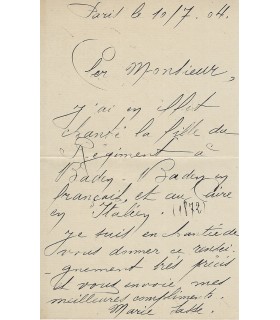 Paris le 10/7. 04.
Cher Monsieur,
J'ai en effet
chanté la fille du
Régiment à
Baden-Baden en
français, et au Caire
en Italien. (1872)
Je suis
vous donner ce rensei-
gnement très précis
et vous envoie, mes
meilleurs compliments.
Marie Sasse.